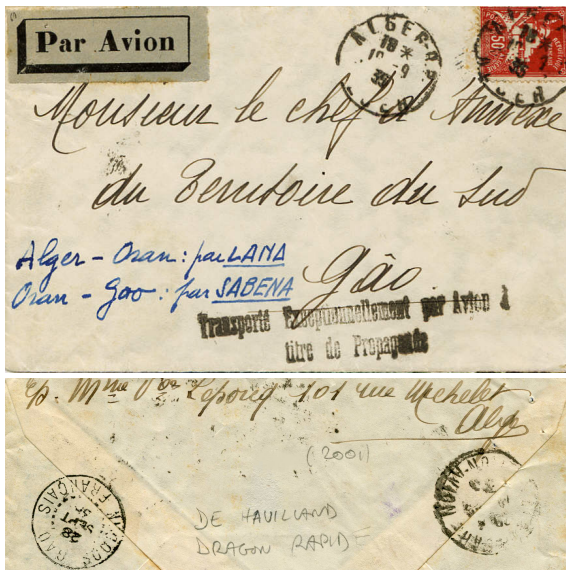 Par Avion
ALGER-RP
18 *
ALGER
50c
Monsieur le chef d'Annexe
du Territoire du Sud
Gâo
Alger - Oran : par LANA
Oran - Gao : par SABENA
Transporté Exceptionnellement par Avion à
titre de Propagande
Mme
101 rue Michelet
Alger
(2001)
GAO
SOUDAN FRANÇAIS
28
SEPT
DE HAVILLAND
DRAGON RAPIDE
AVION